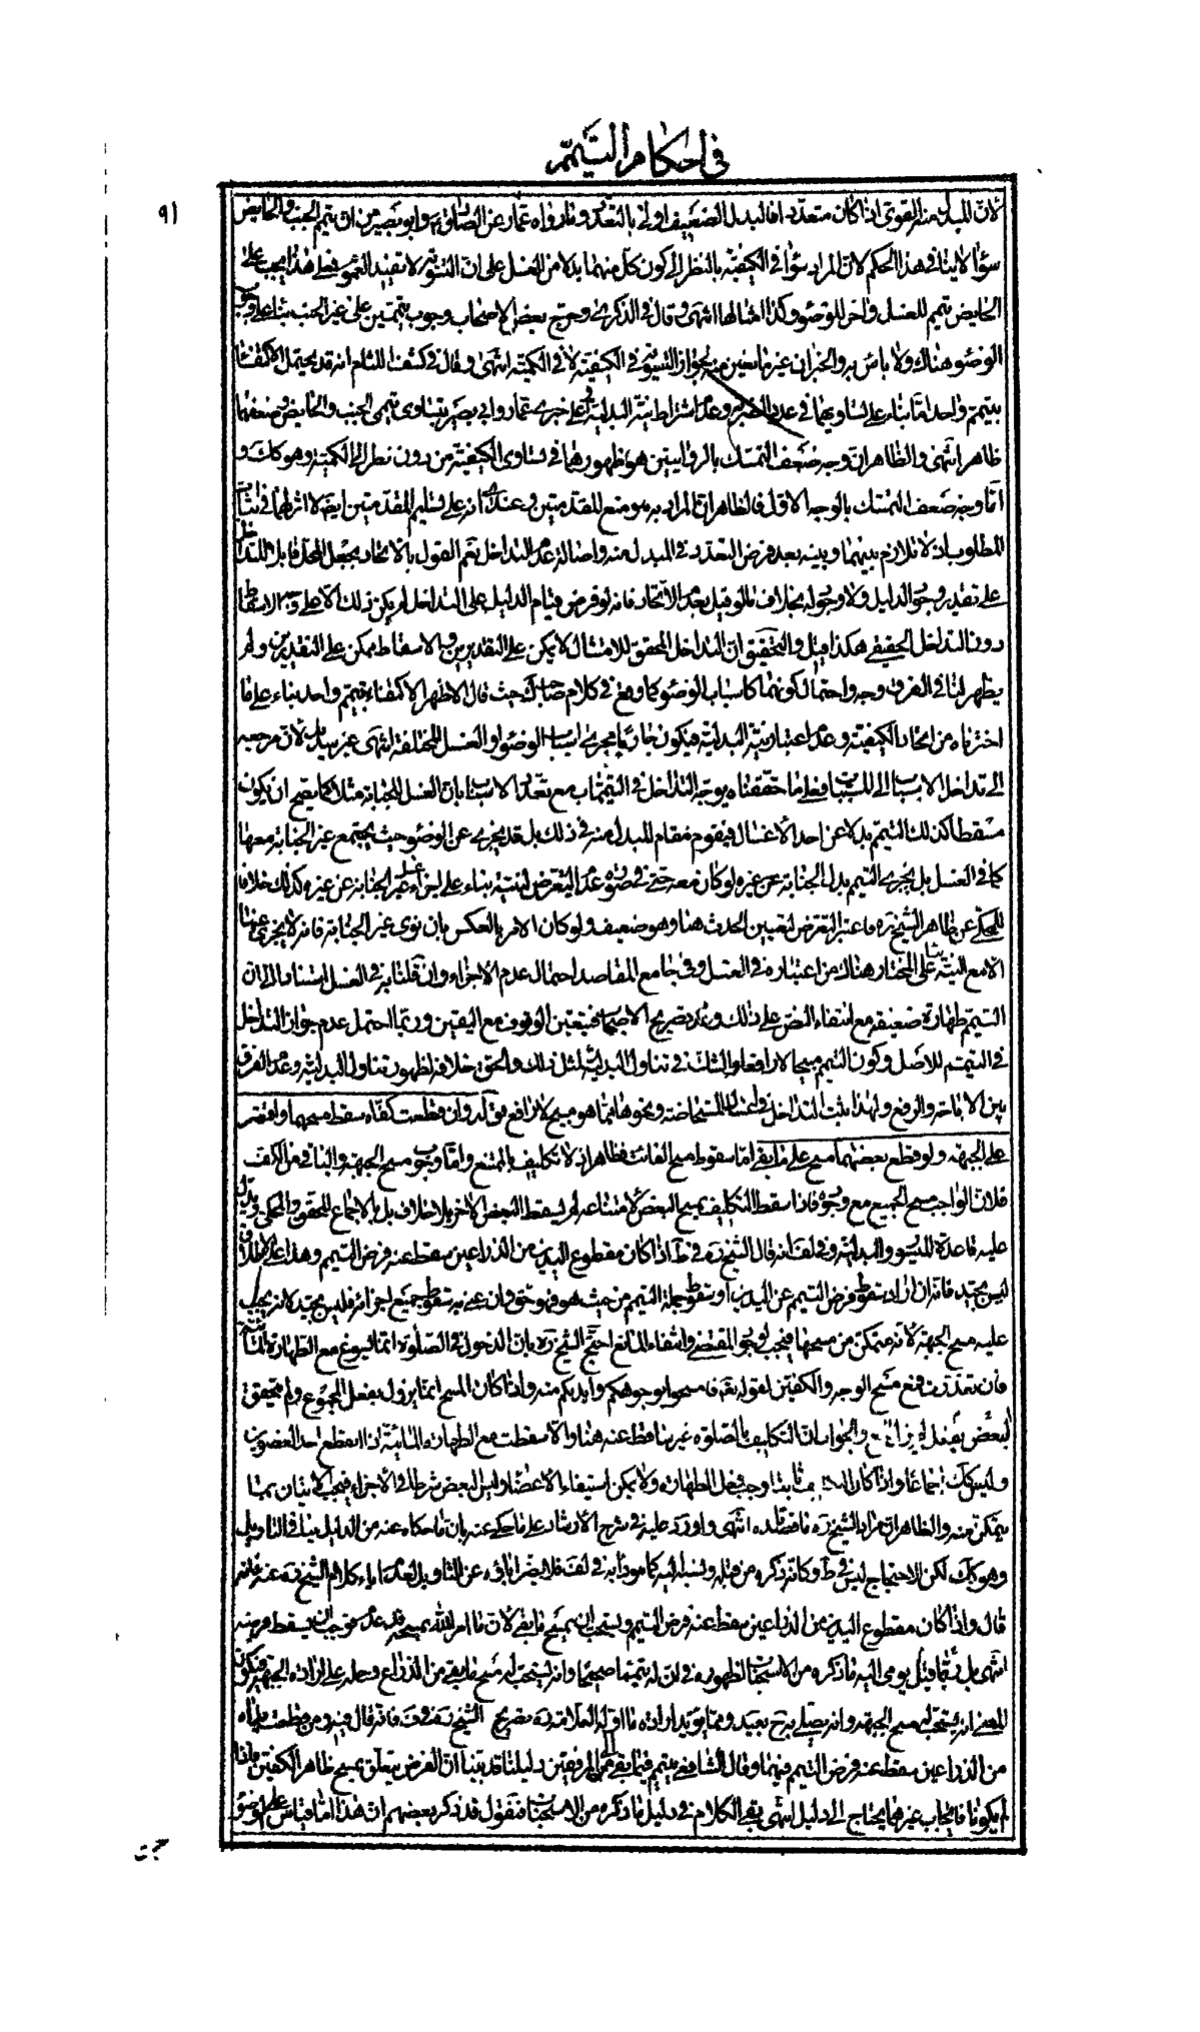 في احكام التيمم
٩١
لان المبدل منه القوى اذا كان متعددا فالبدل الضعيف اولى بالتعدد وما رواه عمار عن الصادق ع وابو بصير من ان تيمم الجنب والحايض
سواء لا ينافي هذا الحكم لان المراد سواء في الكيفية بالنظر الى كون كل منهما بدلا من الغسل على ان التسوية لا تفيد العموم فعلى هذا يجب على
الحايض تيمم للغسل واخر للوضوء وكذا امثالها انتهى وقال في الذكرى وخرج بعض الاصحاب وجوب تيممين على غير الجنب بناء على وجوب
الوضوء هناك ولا باس به والخبران غير مانعين منه لجواز التسوية في الكيفية لا في الكمية انتهى وقال في كشف اللثام انه قد يحتمل الاكتفاء
بتيمم واحد اما بناء على تساويهما في عدد الضرب وعدم اشتراط نية البدلية او على خبرى عمار وابي بصير بتساوى تيممى الجنب والحايض وضعفهما
ظاهر انتهى والظاهر ان وجه ضعف التمسك بالروايتين هو ظهورهما في تساوى الكيفية من دون نظر الى الكمية وهو كك و
اما وجه ضعف التمسك بالوجه الاول فالظاهر ان المراد به هو منع المقدمتين وعندى انه على تسليم المقدمتين ايضا لا اثر لهما في اثبات
المطلوب اذ لا تلازم بينهما وبينه بعد فرض التعدد في المبدل منه واصالة عدم التداخل نعم القول بالاتحاد يجعل المحل قابلا للتداخل
على تقدير وجود الدليل ولا وجود له بخلاف ما لو قيل بعدم الاتحاد فانه لو فرض قيام الدليل على التداخل لم يكن ذلك الا على وجه الاسقاط
دون التداخل الحقيقي هكذا قيل والتحقيق ان التداخل المحقق للامتثال لا يمكن على التقديرين والاسقاط ممكن على التقديرين ولم
يظهر لنا في الفرق وجه واحتمال كونهما كاسباب الوضوء كما وقع في كلام صاحب ك حيث قال الاظهر الاكتفاء بتيمم واحد بناء على ما
اخترناه من اتحاد الكيفية وعدم اعتبار نية البدلية فيكون جاريا مجرى اسباب الوضوء او الغسل المختلفة انتهى غير سديد لان مرجعه
الى تداخل الاسباب الى المسببات فعلى ما حققناه يوجه التداخل في التيممات مع تعدد الاسباب بان الغسل للجنابة مثلا كما يصح ان يكون
مسقطا كذلك التيمم بدلا عن احد الاغسال فيقوم مقام المبدل منه في ذلك بل قد يجزى عن الوضوء حيث يجتمع غير الجنابة معها
كما في الغسل بل يجزى التيمم بدل الجنابة عن غيره لو كان معه حتى في صورة عدم التعرض لنيته بناء على اجزاء غسل الجنابة عن غيره كذلك خلافا
للمحكى عن ظاهر الشيخ ره فاعتبر التعرض لتعيين الحدث هنا وهو ضعيف ولو كان الامر بالعكس بان نوى غير الجنابة فانه لا يجزى عنها
الا مع النية بناء على المختار هناك من اعتباره في الغسل وفي جامع المقاصد احتمال عدم الاجزاء وان قلنا به في الغسل استنادا الى ان
التيمم طهارة ضعيفة مع انتفاء النص على ذلك وعدم تصريح الاصحاب فيتعين الوقوف مع اليقين وربما احتمل عدم جواز التداخل
في التيمم للاصل وكون التيمم مبيحا لا رافعا والشك في تناول البدلية لمثل ذلك والحق خلافه لظهور تناول البدلية وعدم الفرق
بين الاباحة والرفع ولهذا يثبت التداخل في اغسال المستحاضة ونحوها مما هو مبيح لا رافع قوله ولو ان قطعت كفاه سقط مسحهما واقتصر
على الجبهة ولو قطع بعضهما مسح على ما بقى اما سقوط مسح الفائت فظاهر اذ لا تكليف بالممتنع واما وجوب مسح الجبهة والباقي من الكف
فلان الواجب مسح الجميع مع وجوده فاذا سقط التكليف بمسح البعض لامتناعه لم يسقط البعض الاخر بلا خلاف بل بالاجماع المحقق والمحكى ويدل
عليه قاعدة الميسور والبدلية وفي لف انه قال الشيخ ره في ط اذا كان مقطوع اليدين من الذراعين سقط عنه فرض التيمم وهذا على الاطلاق
ليس بجيد فانه ان اراد سقوط فرض التيمم عن اليدين او سقوط جملة التيمم من حيث هو فهو حق وان عنى به سقوط جميع اجزائه فليس بجيد لانه يجب
عليه مسح الجبهة لانه متمكن من مسحها فيجب لوجود المقتضى وانتفاء المانع احتج الشيخ ره بان الدخول في الصلوة انما يسوغ مع الطهارة المائية
فان تعذرت فمع مسح الوجه والكفين لقوله تعه فامسحوا بوجوهكم وايديكم منه واذا كان المسح انما يزول بفعل المجموع ولم يتحقق
البعض بفعل والجواب ان التكليف بالصلوة غير ساقط عنه هنا والا سقطت مع الطهارة المائية اذا انقطع احد العضوين
وليس كك اجماعا واذا كان ثابتا وجب فعل الطهارة ولا يمكن استيفاء الاعضاء وليس البعض شرطا في الاخر فيجب الاتيان بما
يتمكن منه والظاهر ان مراد الشيخ ره ما قصدناه انتهى واورد عليه في شرح الارشاد على ما حكى عنه بان ما حكاه عنه من الدليل ينافي التاويل
وهو كك لكن الاحتجاج ليس في ط وكانه ذكره من قبله ونسبه اليه كما هو دابه في لف فلا يضر اباؤه عن التاويل لعدم اباء كلام الشيخ ره عنه فانه
قال واذا كان مقطوع اليدين من الذراعين سقط عنه فرض التيمم ويستحب ان يمسح ما بقى لان ما امر الله بمسحه قد عدم فوجب ان يسقط فرضه
انتهى بل ربما قيل يومى اليه ما ذكره من الاستحباب لظهوره في ان له تيمما صحيحا وانه يستحب له مسح ما بقى من الذراع وحمله على ارادة الجبهة فيكون
المعنى انه يستحب له مسح الجبهة وانه يصلى بدونه بعيد ومما يؤيد ارادة ما اوله العلامة ره تصريح الشيخ ره في ف فانه قال فيه ومن قطعت يداه
من الذراعين سقط عنه فرض التيمم فيهما وقال الشافعي يتيمم فيما بقى من المرفقين دليلنا قد بينا ان الفرض يتعلق بمسح ظاهر الكفين فاذا
لم يكونا فايجاب غيرهما يحتاج الى دليل انتهى بقى الكلام في دليل ما ذكره من الاستحباب فنقول قد ذكر بعضهم ان هذا اما قياس على الوضوء